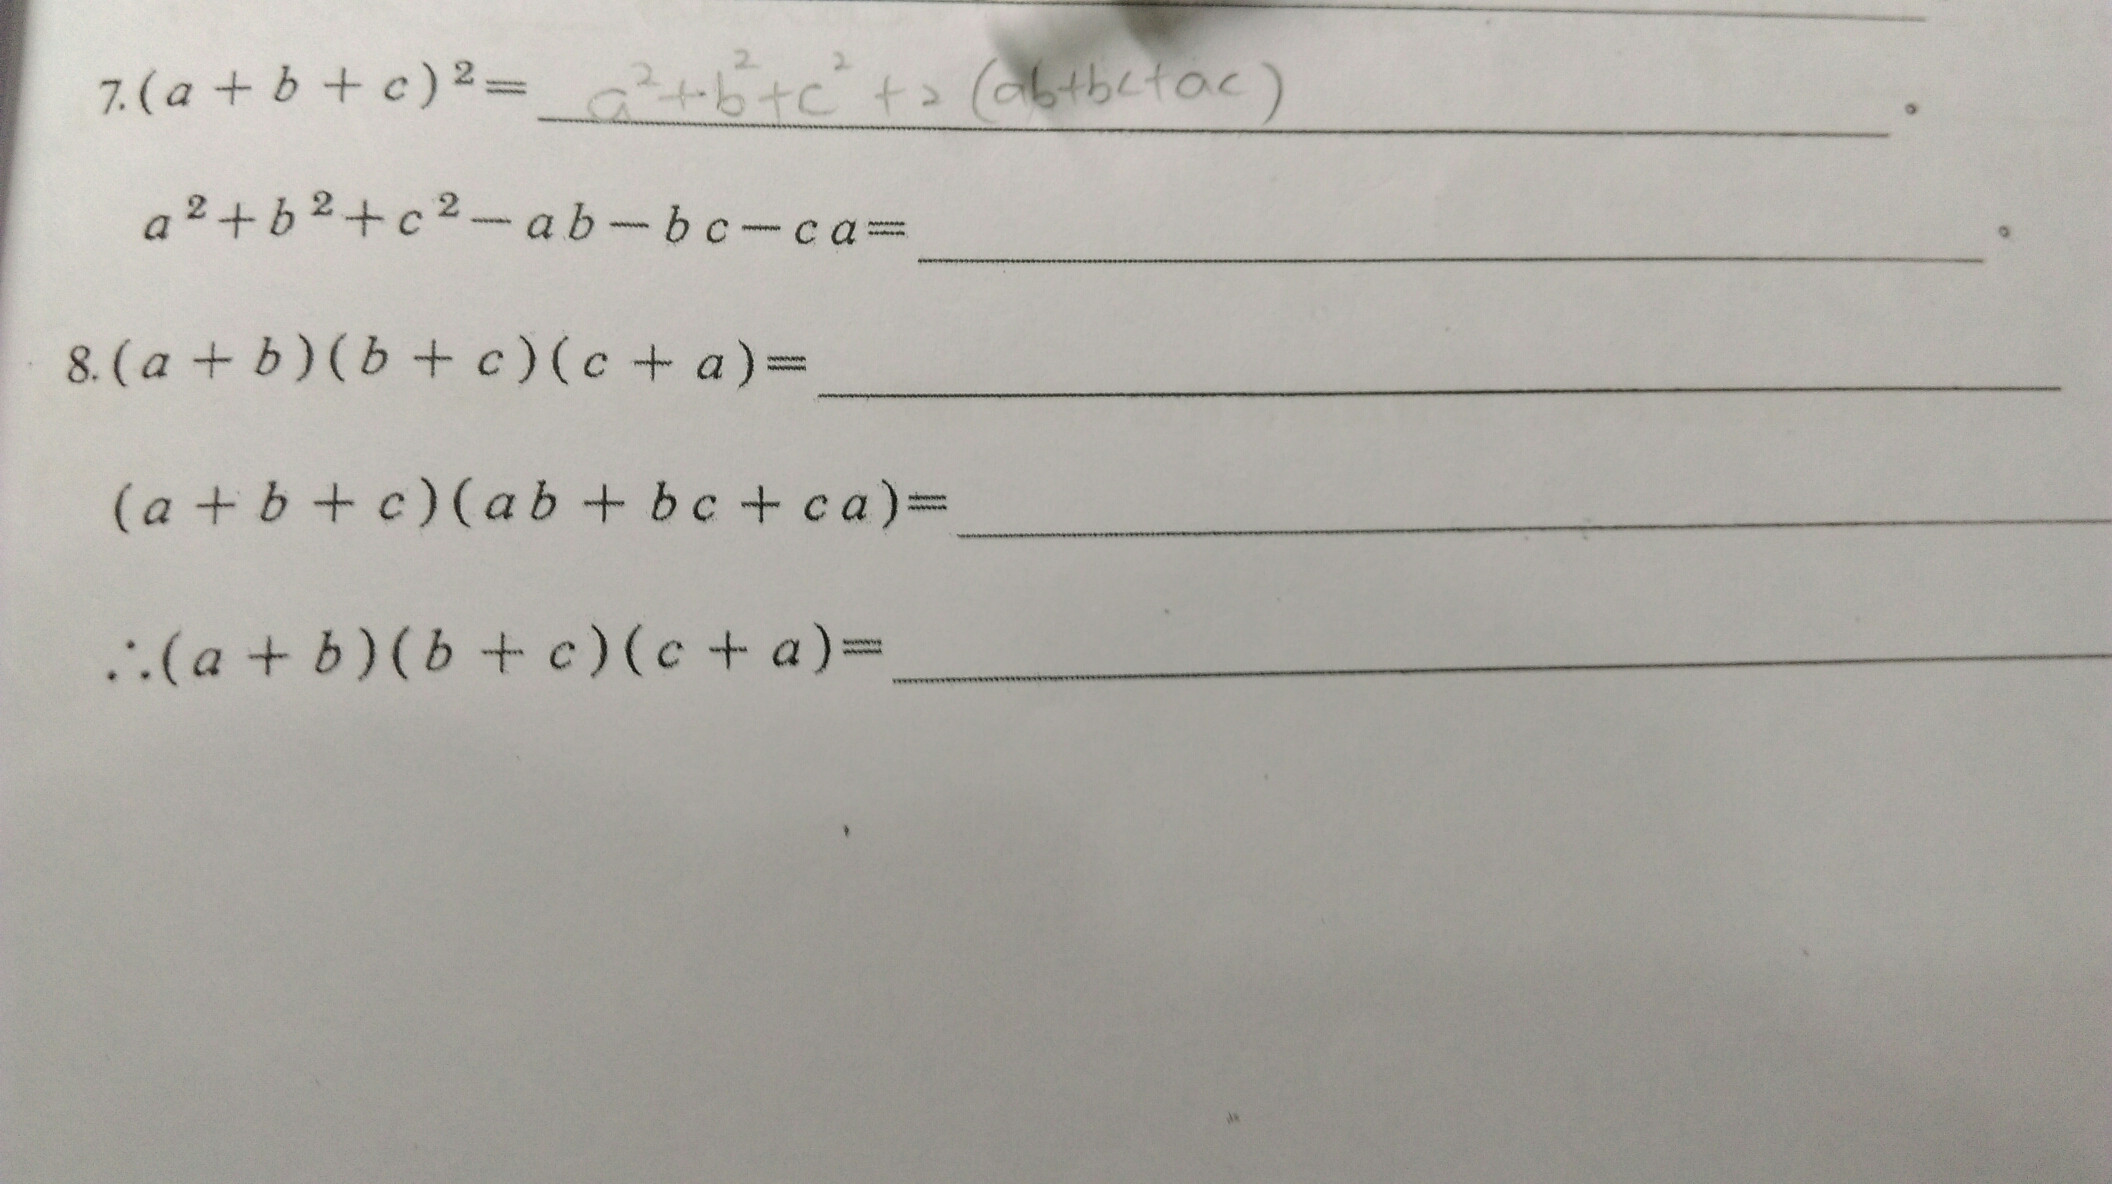 7.(a + b + c)²= a²+b²+c²+2(ab+bc+ac)。
a²+b²+c²-ab-bc-ca=。
8.(a + b)(b + c)(c + a)=
(a + b + c)(ab + bc + ca)=
∴(a + b)(b + c)(c + a)=